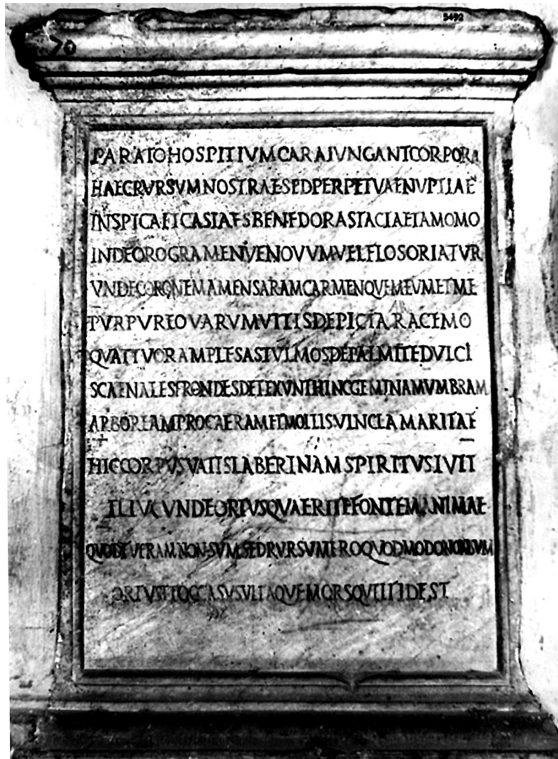 5492
70
PARATO HOSPITIVM CARA IVNGANT CORPORA
HAEC RVRSVM NOSTRAE SED PERPETVAE NVPTIAE
IN SPICA ET CASIA ES BENEDORA STACTA ET AMOMO
INDE ORO GRAMENVE NOVVM VEL FLOS ORIATVR
VNDE CORONEM AMENS ARAM CARMENQVE MEVM ET ME
PVRPVREO VARVM VITIS DEPICTA RACEMO
QVATTVOR AMPLESAST VLMOS DE PALMITE DVLCI
SCAENALES FRONDES DETEXVNT HINC GEMINAM VMBRAM
ARBOREAM PROCAERAM ET MOLLIS VINCLA MARITAE
HIC CORPVS VATIS LABERI NAM SPIRITVS IVIT
ILLVC VNDE ORTVS QVAERITE FONTEM ANIMAE
QVOD FVERAM NON SVM SED RVRSVM ERO QVOD MODO NON SVM
ORTVS ET OCCASVS VITAQVE MORSQVE ITIDEST